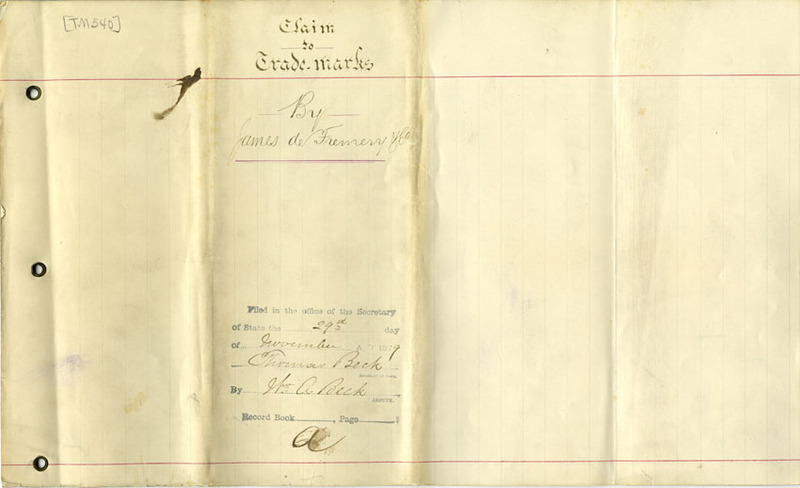 [TM540]
Claim
to
Trade-marks
By
James de Fremery & Co
Filed in the office of the Secretary
of State the 29th day
of November A.D. 1879
Thomas Beck
SECRETARY OF STATE.
By Wm A Beck
DEPUTY.
Record Book , Page
a